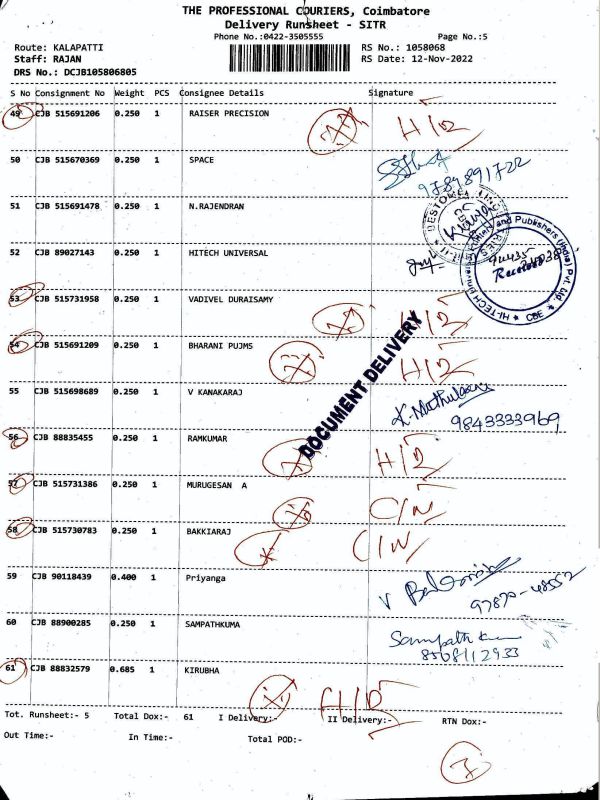 THE PROFESSIONAL COURIERS, Coimbatore
Delivery Runsheet - SITR
Phone No.:0422-3505555
Page No.:5
Route: KALAPATTI
RS No.: 1058068
Staff: RAJAN
RS Date: 12-Nov-2022
DRS No.: DCJB105806805
S No Consignment No Weight PCS Consignee Details Signature
49 CJB 515691206 0.250 1 RAISER PRECISION H/D
50 CJB 515670369 0.250 1 SPACE
9789891722
51 CJB 515691478 0.250 1 N.RAJENDRAN
52 CJB 89027143 0.250 1 HITECH UNIVERSAL
HI-TECH Publishers (India) Pvt. Ltd. * CBE *
53 CJB 515731958 0.250 1 VADIVEL DURAISAMY H/D
54 CJB 515691209 0.250 1 BHARANI PUJMS H/D
DOCUMENT DELIVERY
55 CJB 515698689 0.250 1 V KANAKARAJ
9843333969
56 CJB 88835455 0.250 1 RAMKUMAR H/D
57 CJB 515731386 0.250 1 MURUGESAN A C/N
58 CJB 515730783 0.250 1 BAKKIARAJ C/N
59 CJB 90118439 0.400 1 Priyanga
97870-48552
60 CJB 88900285 0.250 1 SAMPATHKUMA
Sampath Kum
8508112933
61 CJB 88832579 0.685 1 KIRUBHA H/D
Tot. Runsheet:- 5 Total Dox:- 61 I Delivery:- II Delivery:- RTN Dox:-
Out Time:- In Time:- Total POD:-